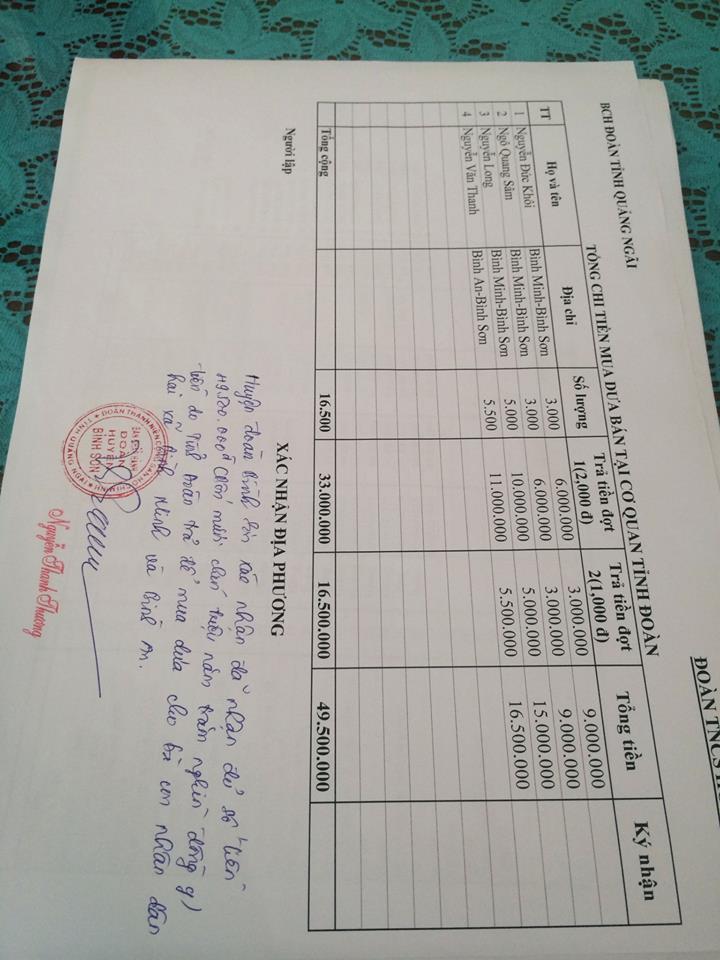 BCH ĐOÀN TỈNH QUẢNG NGÃI
ĐOÀN TNCS
TỔNG CHI TIỀN MUA DƯA BÁN TẠI CƠ QUAN TỈNH ĐOÀN
TT Họ và tên Địa chỉ Số lượng Trả tiền đợt 1(2,000 đ) Trả tiền đợt 2(1,000 đ) Tổng tiền Ký nhận
1 Nguyễn Đức Khôi Bình Minh-Bình Sơn 3.000 6.000.000 3.000.000 9.000.000
2 Ngô Quang Sâm Bình Minh-Bình Sơn 3.000 6.000.000 3.000.000 9.000.000
3 Nguyễn Long Bình Minh-Bình Sơn 5.000 10.000.000 5.000.000 15.000.000
4 Nguyễn Văn Thanh Bình An-Bình Sơn 5.500 11.000.000 5.500.000 16.500.000
Tổng cộng 16.500 33.000.000 16.500.000 49.500.000
Người lập
XÁC NHẬN ĐỊA PHƯƠNG
Huyện đoàn Bình Sơn xác nhận đã nhận đủ số tiền
49.500.000đ (Bốn mươi chín triệu năm trăm nghìn đồng y)
tiền do Tỉnh Đoàn trả để mua dưa cho bà con nhân dân
hai xã Bình Minh và Bình An.
ĐOÀN THANH NIÊN CỘNG SẢN HỒ CHÍ MINH
TỈNH QUẢNG NGÃI
BAN CHẤP HÀNH
ĐOÀN
HUYỆN
BÌNH SƠN
Nguyễn Thanh Thương